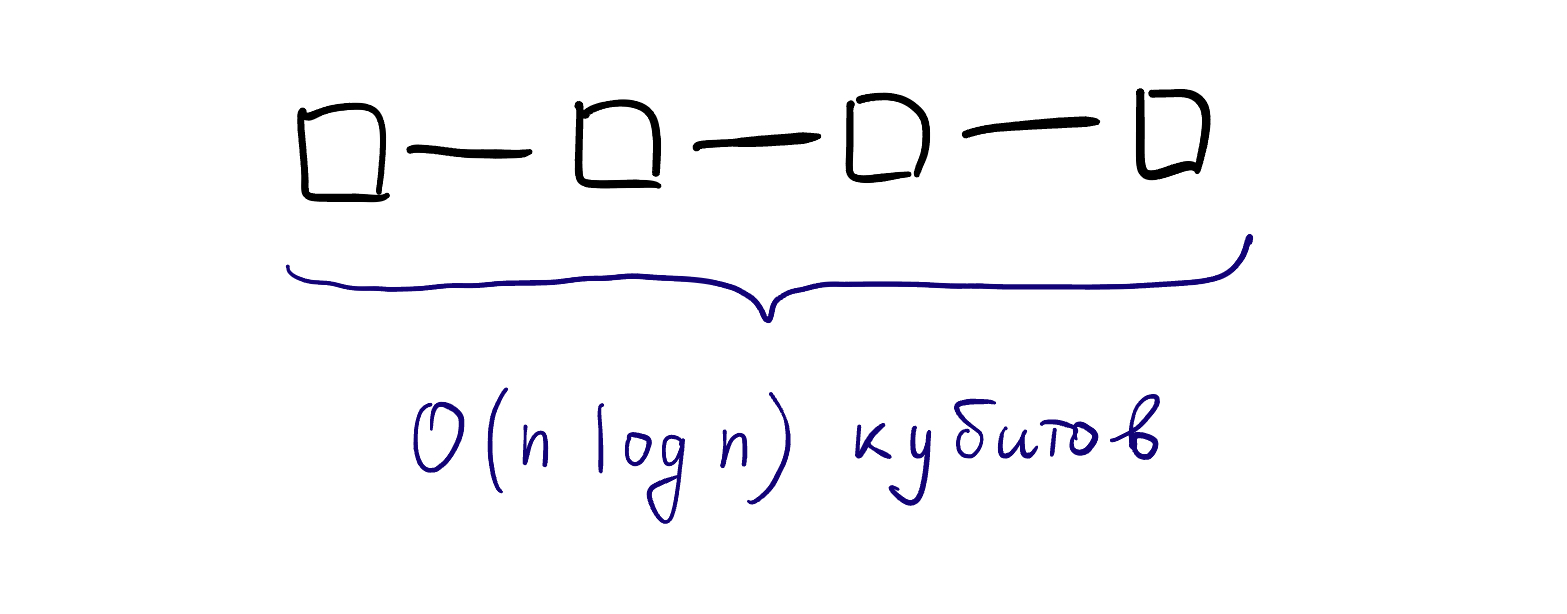 O(n log n) кубитов